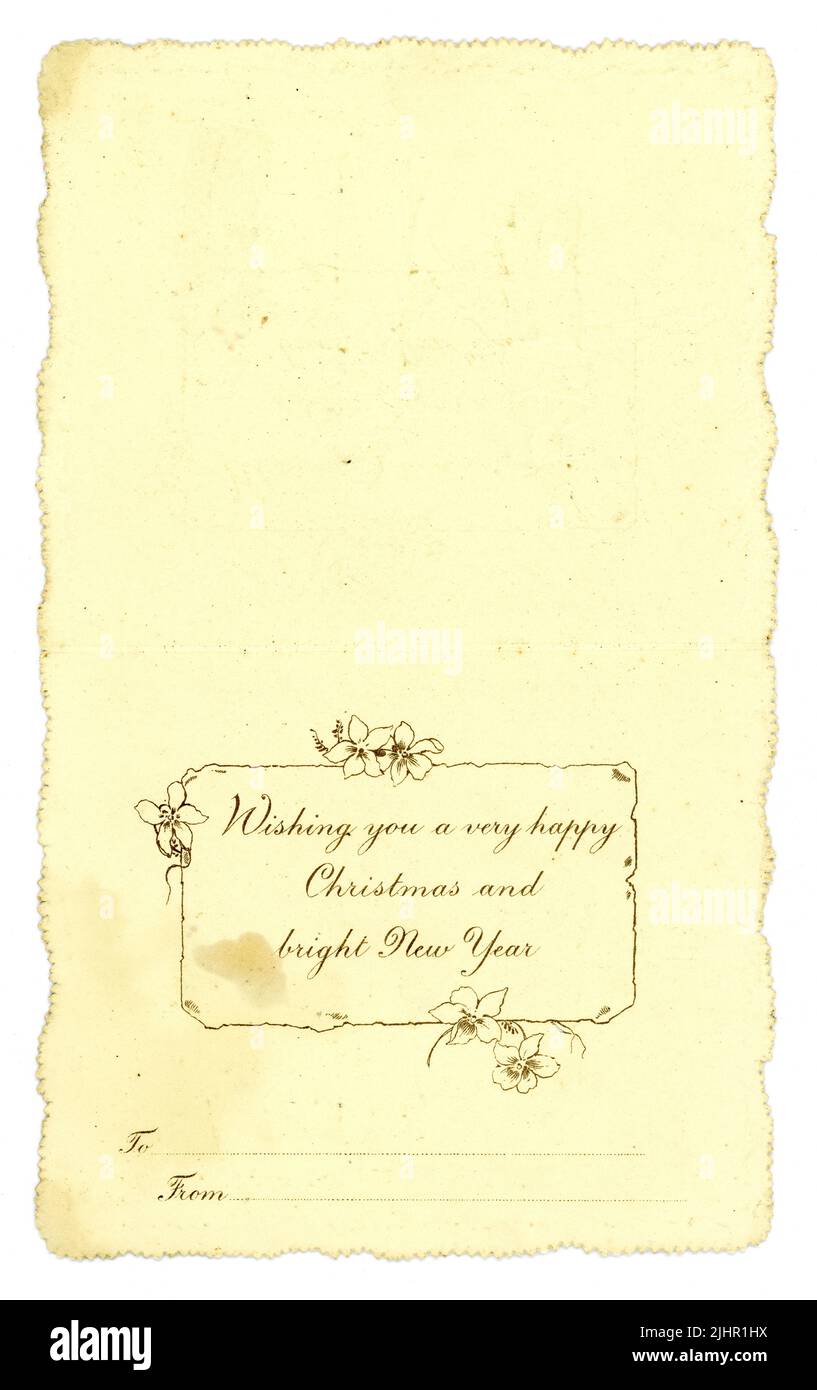 alamy
alamy
Wishing you a very happy
Christmas and
bright New Year
alamy
To
From
alamy
Image ID: 2JHR1HX
www.alamy.com